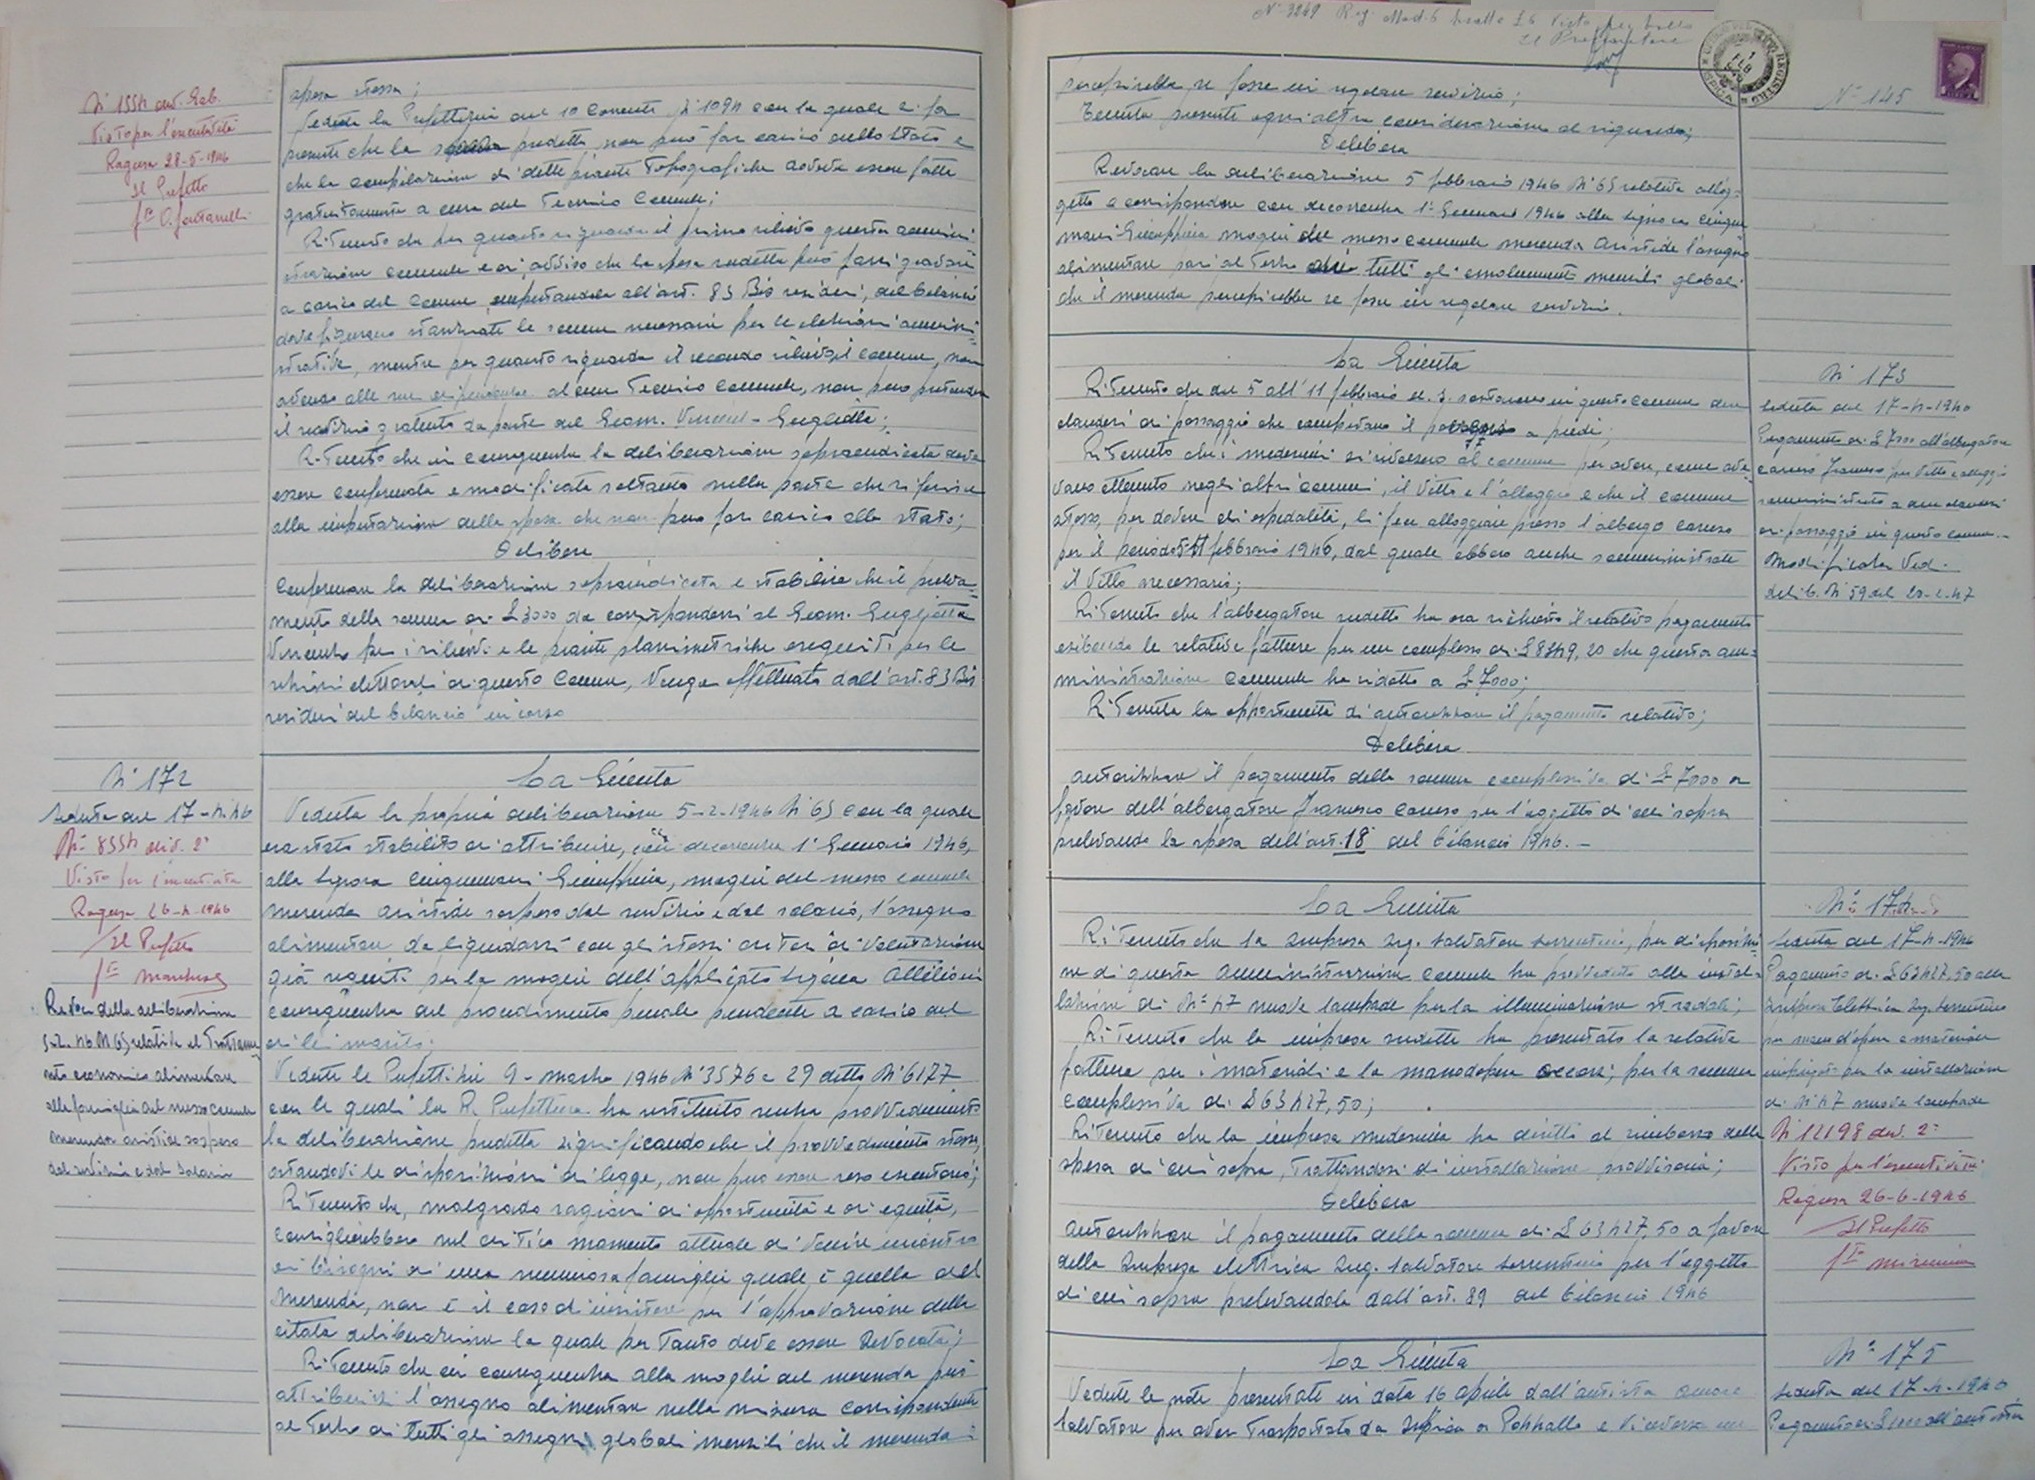 N° 1554 div. Gab.
Visto per l'esecutività
Ragusa 28-5-1946
Il Prefetto
spesa stessa;
Veduta la Prefettizia del 10 corrente N° 1094 con la quale si fa
presente che la spesa predetta non può far carico dello Stato e
che la compilazione di dette piante topografiche doveva essere fatta
gratuitamente a cura del Tecnico Comunale;
Ritenuto che per quanto riguarda il primo rilievo questa ammini-
strazione comunale è di avviso che la spesa suddetta può farsi gravare
a carico del Comune imputandola all'art. 83 Bis residui, del bilancio
dove figurano stanziate le somme necessarie per le elezioni ammini-
strative, mentre per quanto riguarda il secondo rilievo il Comune, non
avendo alle sue dipendenze alcun Tecnico Comunale, non può pretendere
il servizio gratuito da parte del Geom. Guglietta;
Ritenuto che in conseguenza la deliberazione sopraindicata deve
essere confermata e modificata soltanto nella parte che si riferisce
alla imputazione della spesa che non può far carico allo Stato;
Delibera
Confermare la deliberazione sopraindicata e stabilire che il preleva-
mento della somma di £ 3000 da corrispondersi al Geom. Guglietta
Vincenzo per i rilievi e le piante planimetriche eseguiti per le
sezioni elettorali di questo Comune, venga effettuato dall'art. 83 Bis
residui del bilancio in corso
N° 172
Seduta del 17-4-46
N° 8554 div. 2ª
Visto per l'esecutività
Ragusa 26-4-1946
Il Prefetto
Revoca della deliberazione
5-2-46 N 65 relativa al Tratta-
mento economico alimentare
alla famiglia del messo comunale
Merenda Aristide sospeso
dal servizio e dal salario
La Giunta
Veduta la propria deliberazione 5-2-1946 N° 65 con la quale
era stato stabilito di attribuire, con decorrenza 1° Gennaio 1946,
alla Signora Cinquemani Giuseppina, moglie del messo comunale
Merenda Aristide sospeso dal servizio e dal salario, l'assegno
alimentare da liquidarsi con gli stessi criteri di valutazione
già seguiti per la moglie dell'applicato in
conseguenza del procedimento penale pendente a carico del
di lei marito;
Vedute le Prefettizie 9 - marzo 1946 N° 3576 e 29 detto N° 6177
con le quali la R. Prefettura ha restituito senza provvedimento
la deliberazione predetta significando che il provvedimento stesso,
ostandovi le disposizioni di legge, non può essere reso esecutorio;
Ritenuto che, malgrado ragioni di opportunità e di equità,
consiglierebbero nel critico momento attuale di venire incontro
ai bisogni di una numerosa famiglia quale è quella del
Merenda, non è il caso di insistere per l'approvazione della
citata deliberazione la quale per tanto deve essere revocata;
Ritenuto che in conseguenza alla moglie del Merenda può
attribuirsi l'assegno alimentare nella misura corrispondente
al terzo di tutti gli assegni globali mensili che il Merenda
N° 3249 Reg. Mod. 6 Visto per bollo
Il Procuratore
N° 145
percepirebbe se fosse in regolare servizio;
Tenuta presente ogni altra considerazione al riguardo;
Delibera
Revocare la deliberazione 5 febbraio 1946 N° 65 relativa all'og-
getto e corrispondere con decorrenza 1° Gennaio 1946 alla signora Cinque
mani Giuseppina moglie del messo comunale Merenda Aristide l'assegno
alimentare pari al terzo di tutti gli emolumenti mensili globali
che il Merenda percepirebbe se fosse in regolare servizio.
La Giunta
Ritenuto che dal 5 all'11 febbraio u. s. sostarono in questo Comune due
olandesi di passaggio che compivano il a piedi;
Ritenuto che i medesimi si rivolsero al comune per avere, come ave-
vano ottenuto negli altri comuni, il vitto e l'alloggio e che il comune
stesso, per dovere di ospitalità, li fece alloggiare presso l'albergo Caruso
per il periodo 5-11 febbraio 1946, dal quale ebbero anche somministrato
il vitto necessario;
Ritenuto che l'albergatore suddetto ha ora richiesto il relativo pagamento
esibendo le relative fatture per un complesso di £ 8349,20 che questa am-
ministrazione comunale ha ridotto a £ 7000;
Ritenuta la opportunità di autorizzare il pagamento relativo;
Delibera
Autorizzare il pagamento della somma complessiva di £ 7000 a
favore dell'albergatore Francesco Caruso per l'oggetto di cui sopra
prelevando la spesa dell'art. 18 del bilancio 1946. -
N° 173
Seduta del 17-4-1946
Pagamento di £ 7000 all'albergatore
Caruso Francesco per vitto e alloggio
somministrato a due olandesi
di passaggio in questo comune.
Modificata Ved.
delib. N° 59 del 20-2-47
La Giunta
Ritenuto che la Impresa Ing. Salvatore Sorrentino, per disposizio-
ne di questa Amministrazione Comunale ha provveduto alla instal-
lazione di N° 47 nuove lampade per la illuminazione stradale;
Ritenuto che la impresa suddetta ha presentato la relativa
fattura per i materiali e la manodopera per la somma
complessiva di £ 63427,50;
Ritenuto che la impresa medesima ha diritto al rimborso della
spesa di cui sopra, trattandosi di installazione provvisoria;
Delibera
Autorizzare il pagamento della somma di £ 63427,50 a favore
della Impresa elettrica Ing. Salvatore Sorrentino per l'oggetto
di cui sopra prelevandola dall'art. 89 del bilancio 1946
N° 174
Seduta del 17-4-1946
Pagamento di £ 63427,50 alla
Impresa Elettrica Ing. Sorrentino
per mano d'opera e materiale
impiegato per la installazione
di N° 47 nuove lampade
N 12198 div. 2ª
Visto per l'esecutività
Ragusa 26-6-1946
Il Prefetto
La Giunta
Vedute le note presentate in data 16 aprile dall'autista
Salvatore per aver trasportato da Ispica a Pozzallo e viceversa
N° 175
Seduta del 17-4-1946
Pagamento di £ 1000 all'autista